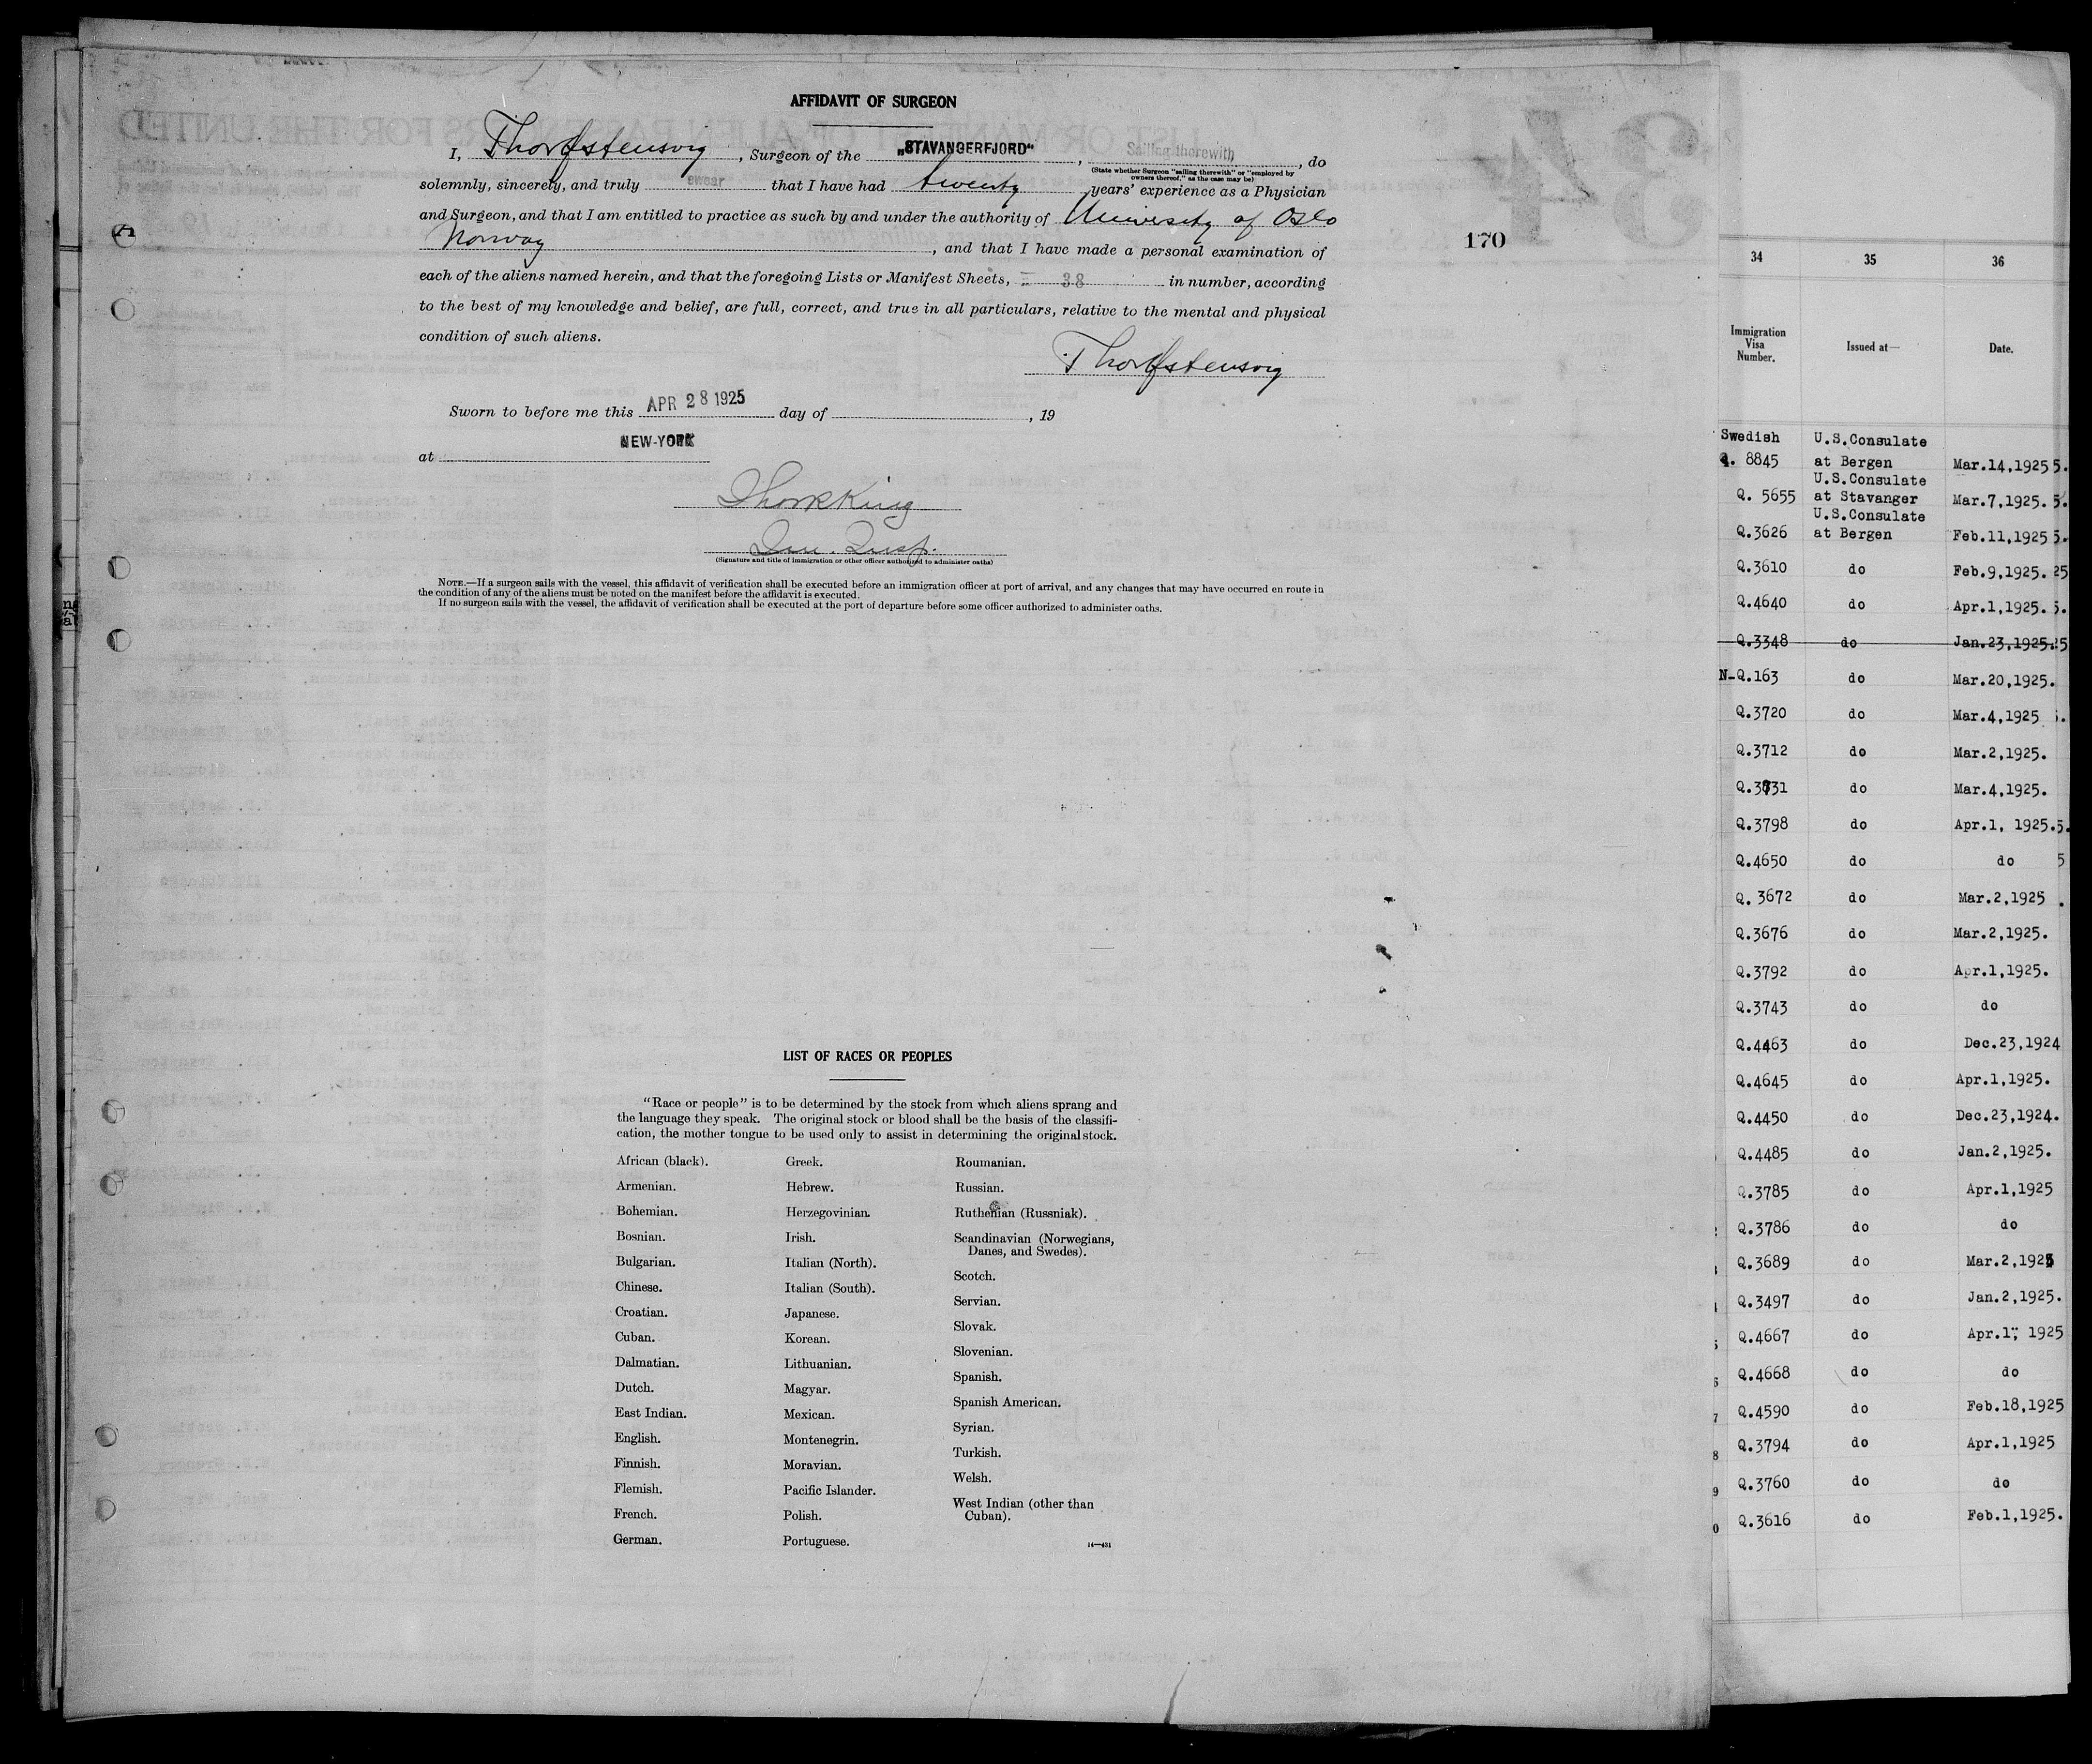 AFFIDAVIT OF SURGEON
I, Thorfstensvig, Surgeon of the „STAVANGERFJORD“, Sailing therewith, do
(State whether Surgeon "sailing therewith" or "employed by
owners thereof," as the case may be)
solemnly, sincerely, and truly swear that I have had twenty years' experience as a Physician
and Surgeon, and that I am entitled to practice as such by and under the authority of University of Oslo
Norway, and that I have made a personal examination of
each of the aliens named herein, and that the foregoing Lists or Manifest Sheets, 38 in number, according
to the best of my knowledge and belief, are full, correct, and true in all particulars, relative to the mental and physical
condition of such aliens.
Thorfstensvig
Sworn to before me this APR 28 1925 day of , 19
at NEW-YORK
King
Imm. Insp.
(Signature and title of immigration or other officer authorized to administer oaths)
NOTE.—If a surgeon sails with the vessel, this affidavit of verification shall be executed before an immigration officer at port of arrival, and any changes that may have occurred en route in
the condition of any of the aliens must be noted on the manifest before the affidavit is executed.
If no surgeon sails with the vessel, the affidavit of verification shall be executed at the port of departure before some officer authorized to administer oaths.
170
LIST OF RACES OR PEOPLES
"Race or people" is to be determined by the stock from which aliens sprang and
the language they speak. The original stock or blood shall be the basis of the classifi-
cation, the mother tongue to be used only to assist in determining the original stock.
African (black).
Armenian.
Bohemian.
Bosnian.
Bulgarian.
Chinese.
Croatian.
Cuban.
Dalmatian.
Dutch.
East Indian.
English.
Finnish.
Flemish.
French.
German.
Greek.
Hebrew.
Herzegovinian.
Irish.
Italian (North).
Italian (South).
Japanese.
Korean.
Lithuanian.
Magyar.
Mexican.
Montenegrin.
Moravian.
Pacific Islander.
Polish.
Portuguese.
Roumanian.
Russian.
Ruthenian (Russniak).
Scandinavian (Norwegians,
Danes, and Swedes).
Scotch.
Servian.
Slovak.
Slovenian.
Spanish.
Spanish American.
Syrian.
Turkish.
Welsh.
West Indian (other than
Cuban).
14—431
34 35 36
Immigration
Visa
Number.
Issued at—
Date.
Swedish U.S.Consulate
Q. 8845 at Bergen Mar.14,1925
U.S.Consulate
Q. 5655 at Stavanger Mar.7,1925.
U.S.Consulate
Q.3626 at Bergen Feb.11,1925
Q.3610 do Feb.9,1925.
Q.4640 do Apr.1,1925.
Q.3348 do Jan.23,1925.
N-Q.163 do Mar.20,1925.
Q.3720 do Mar.4,1925
Q.3712 do Mar.2,1925.
Q.3731 do Mar.4,1925.
Q.3798 do Apr.1, 1925.
Q.4650 do do
Q. 3672 do Mar.2,1925
Q.3676 do Mar.2,1925.
Q.3792 do Apr.1,1925.
Q.3743 do do
Q.4463 do Dec.23,1924
Q.4645 do Apr.1,1925.
Q.4450 do Dec.23,1924.
Q.4485 do Jan.2,1925.
Q.3785 do Apr.1,1925
Q.3786 do do
Q.3689 do Mar.2,1925
Q.3497 do Jan.2,1925.
Q.4667 do Apr.1, 1925
Q.4668 do do
Q.4590 do Feb.18,1925
Q.3794 do Apr.1,1925
Q.3760 do do
Q.3616 do Feb.1,1925.